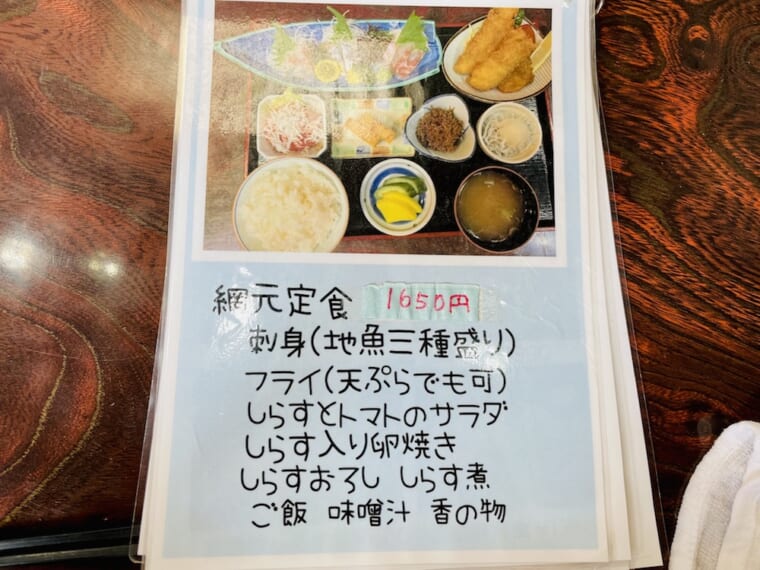 網元定食 1650円
刺身(地魚三種盛り)
フライ(天ぷらでも可)
しらすとトマトのサラダ
しらす入り卵焼き
しらすおろし しらす煮
ご飯 味噌汁 香の物